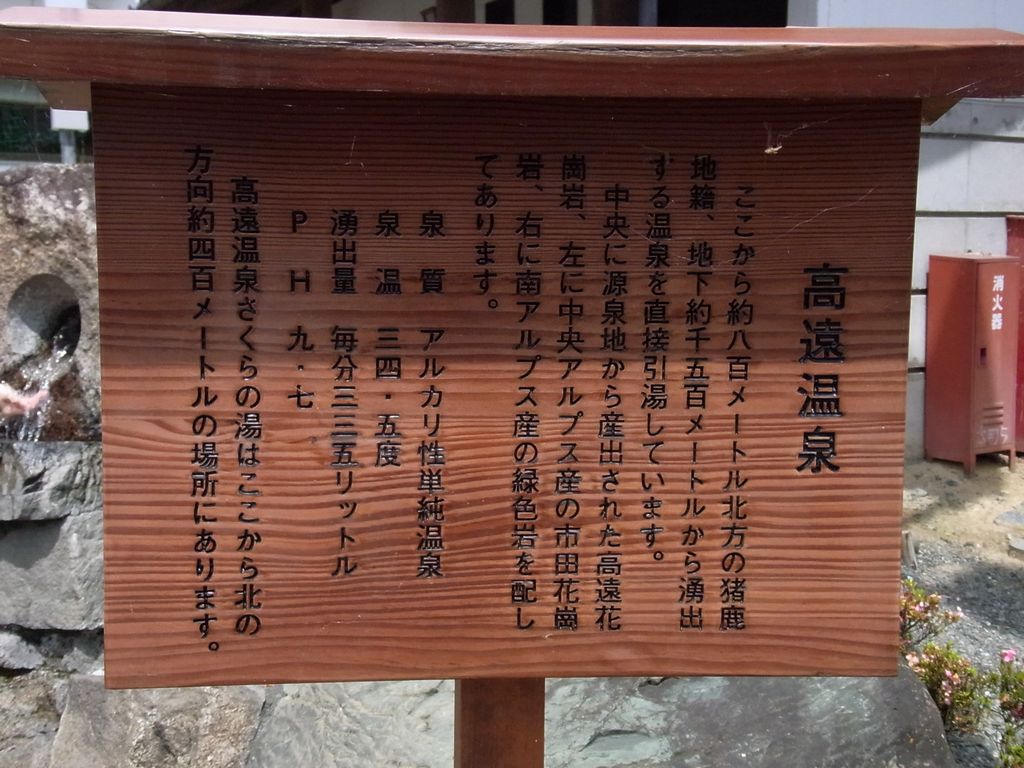 高遠温泉
ここから約八百メートル北方の猪鹿
地籍、地下約千五百メートルから湧出
する温泉を直接引湯しています。
中央に源泉地から産出された高遠花
崗岩、左に中央アルプス産の市田花崗
岩、右に南アルプス産の緑色岩を配し
てあります。
泉質 アルカリ性単純温泉
泉温 三四・五度
湧出量 毎分三三五リットル
PH 九・七
高遠温泉さくらの湯はここから北の
方向約四百メートルの場所にあります。
消火器